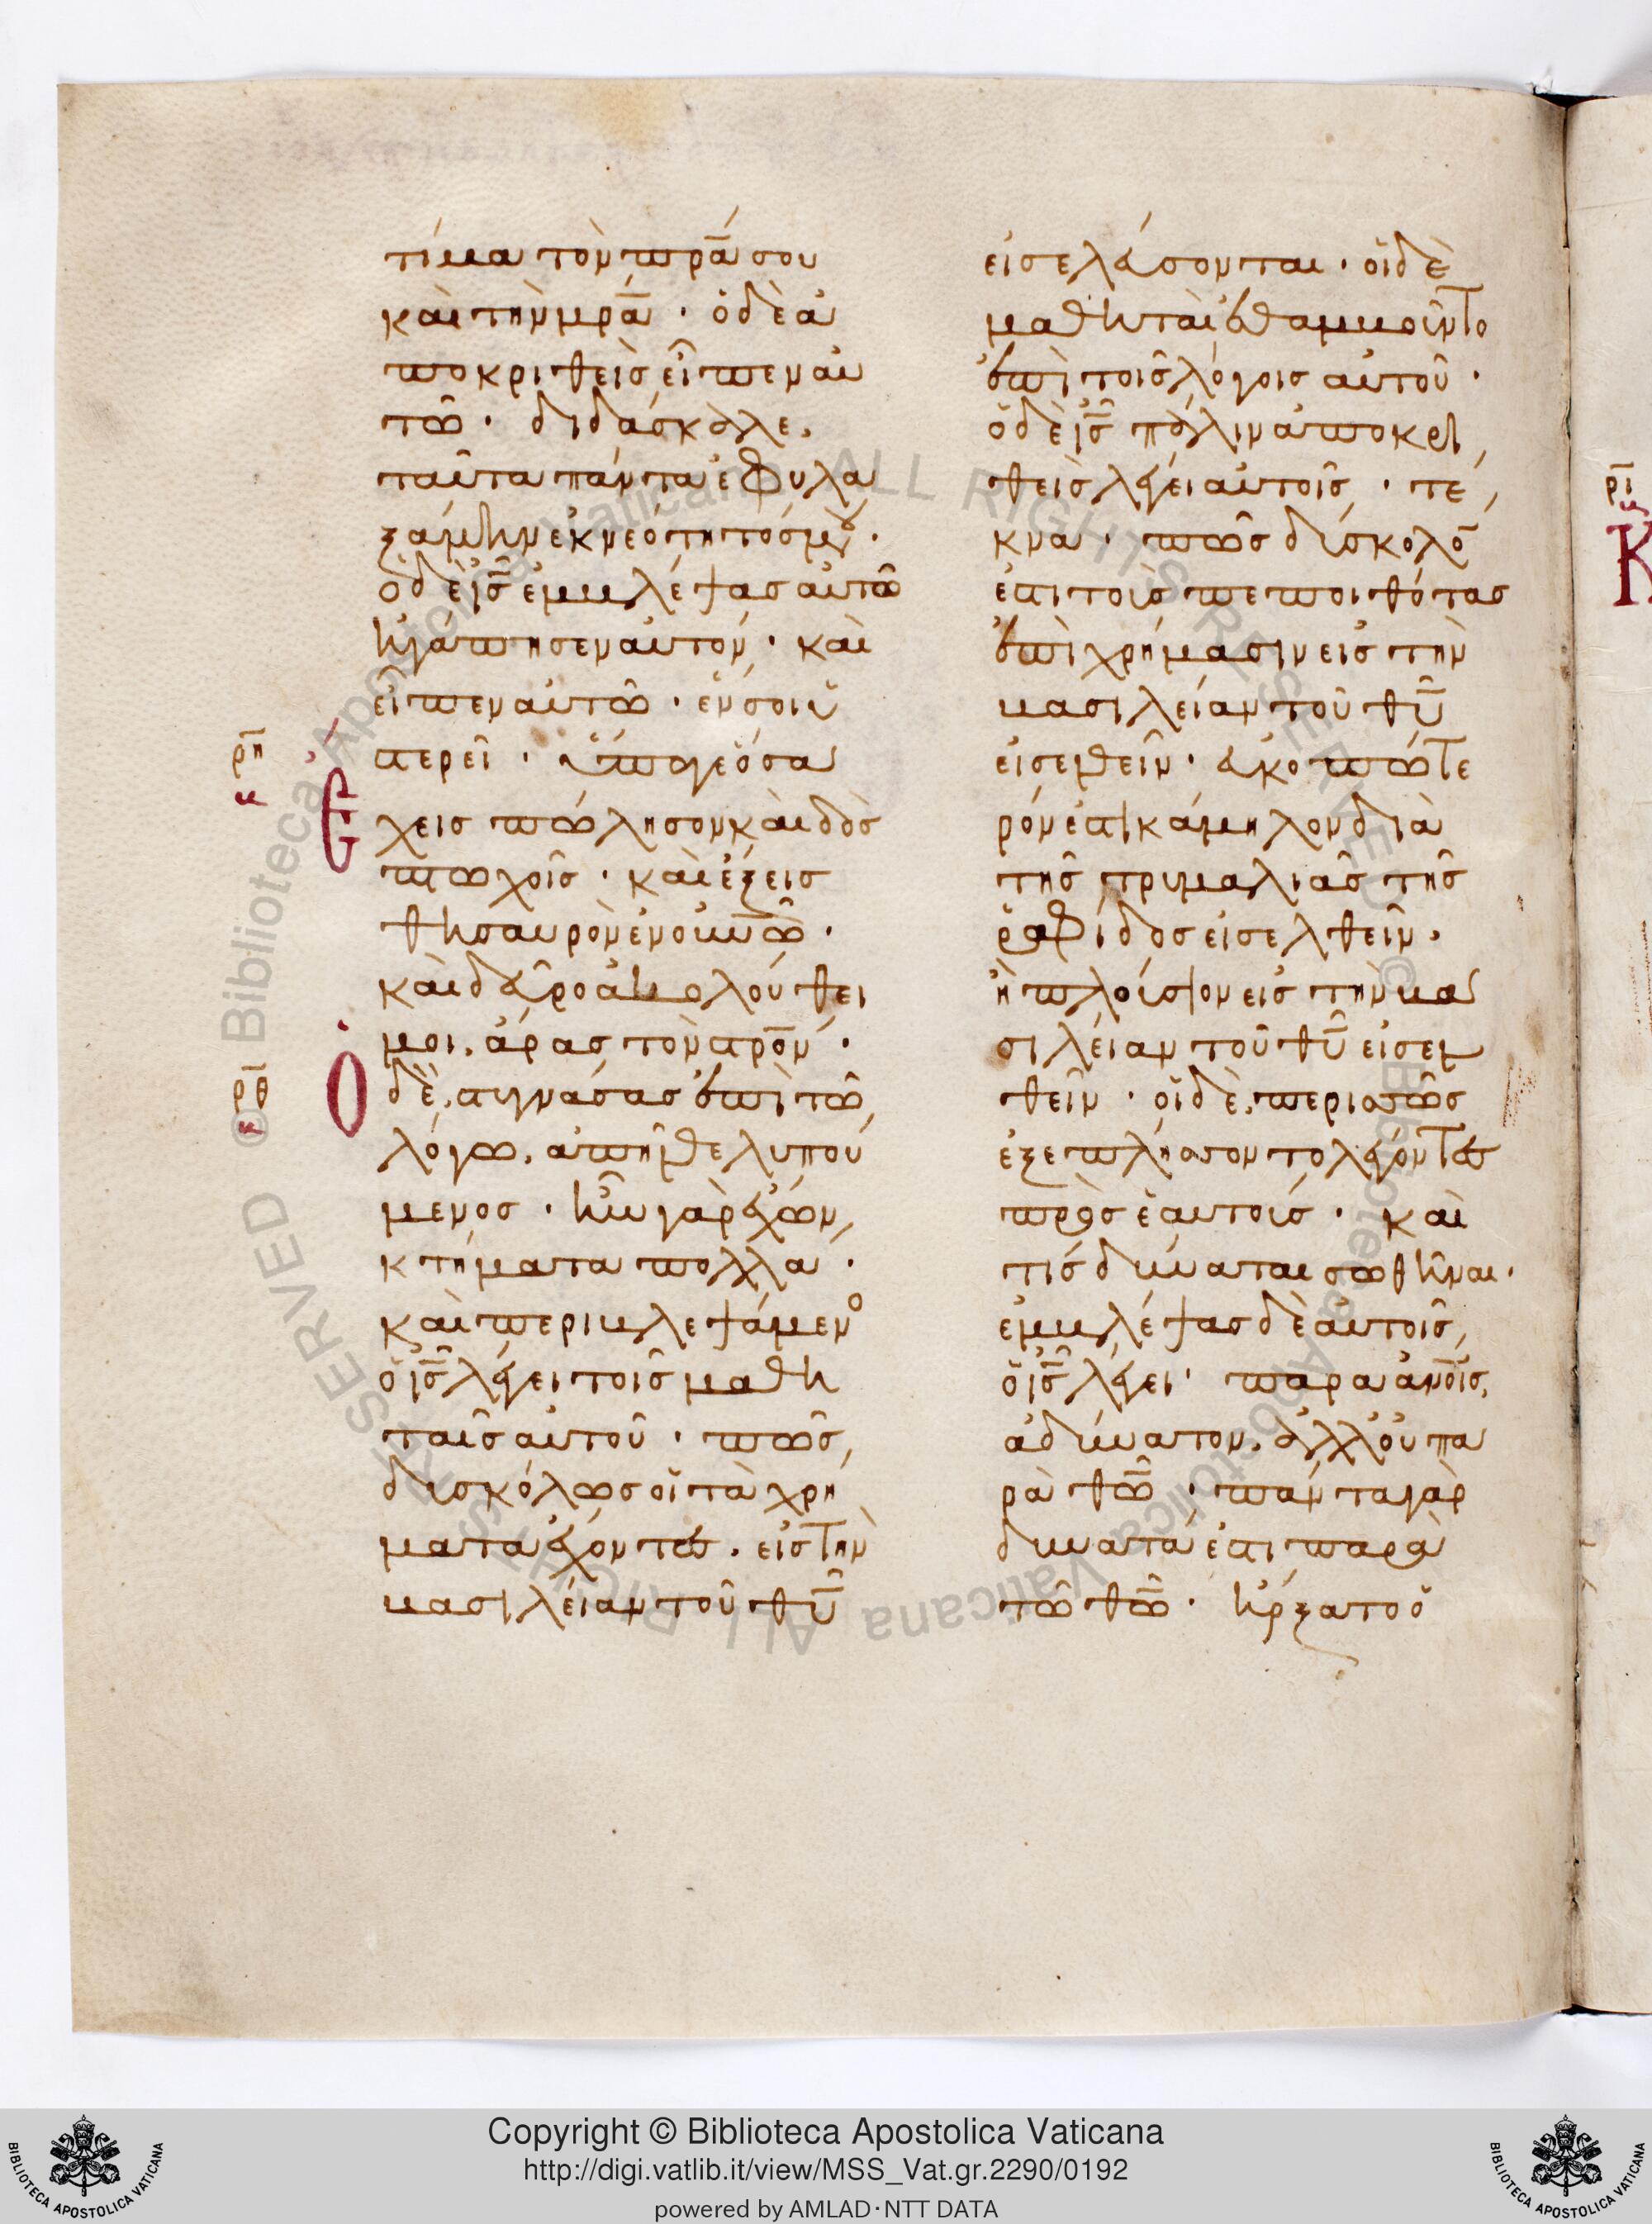 τίμα τὸν πρ̅α σου
καὶ τὴν μρ̅α · ὁ δὲ ἀ
ποκριθεὶς εἶπεν αὐ
τῶ · διδάσκαλε,
ταῦτα πάντα ἐφυλα
ξάμην ἐκ νεότητός μου ·
ὁ δὲ ι̅ς̅ ἐμβλέψας αὐτῶ
ἠγάπησεν αὐτόν · καὶ
εἶπεν αὐτῶ · ἕν σοι ὑ
στερεῖ · ὕπαγε ὅσα
ρη
Ἔχεις πώλησον καὶ δὸς
πτωχοῖς · καὶ ἕξεις
θησαυρὸν ἐν ου̅νω̅ ·
καὶ δεῦρο ἀκολούθει
μοι, ἄρας τὸν στρο̅ν ·
ρθ
Ὁ δὲ, στυγνάσας ἐπὶ τῶ
λόγω, ἀπῆλθε λυπού
μενος · ἦν γὰρ ἔχων,
κτήματα πολλά ·
καὶ περιβλεψάμενος
ὁ ι̅ς̅ λέγει τοῖς μαθη
ταῖς αὐτοῦ · πῶς,
δυσκόλως οἱ τὰ χρή
ματα ἔχοντες, εἰς τὴν
βασιλείαν τοῦ θυ̅
εἰσελεύσονται · οἱ δὲ
μαθηταὶ ἐθαμβοῦντο
ἐπὶ τοῖς λόγοις αὐτοῦ ·
ὁ δὲ ι̅ς̅ πάλιν ἀποκρι
θεὶς λέγει αὐτοῖς · τέ
κνα · πῶς δύσκολόν
ἐστι τοὺς πεποιθότας
ἐπὶ χρήμασιν εἰς τὴν
βασιλείαν τοῦ θυ̅
εἰσελθεῖν · εὐκοπώτε
ρόν ἐστι κάμηλον διὰ
τῆς τρυμαλιᾶς τῆς
ῥαφίδος εἰσελθεῖν ·
ἢ πλούσιον εἰς τὴν βα
σιλείαν τοῦ θυ̅ εἰσελ
θεῖν · οἱ δὲ, περισσῶς
ἐξεπλήσσοντο λέγοντες
πρὸς ἑαυτούς · καὶ
τίς δύναται σωθῆναι ·
ἐμβλέψας δὲ αὐτοῖς,
ὁ ι̅ς̅ λέγει · παρὰ ἀνο̅ις,
ἀδύνατον, ἀλλ' οὐ πα
ρὰ θω̅ · πάντα γὰρ
δυνατά ἐστι παρὰ
τῶ θω̅ · ἤρξατο ὁ
ρι
Κ
Copyright © Biblioteca Apostolica Vaticana
http://digi.vatlib.it/view/MSS_Vat.gr.2290/0192
powered by AMLAD·NTT DATA